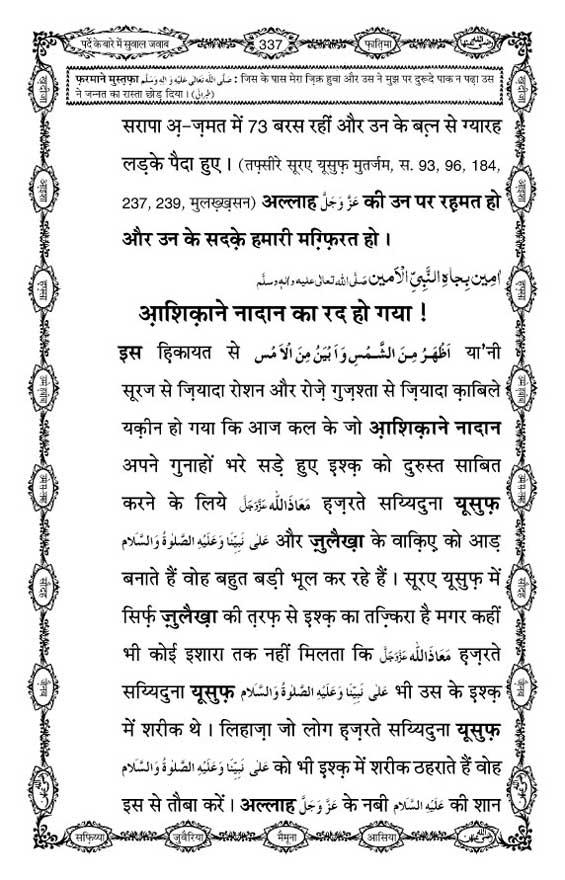 पर्दे के बारे में सुवाल जवाब
337
फ़ातिमा
फ़रमाने मुस्तफ़ा صَلَّى اللّٰهُ تَعَالٰى عَلَيْهِ وَاٰلِهٖ وَسَلَّم : जिस के पास मेरा ज़िक्र हुवा और उस ने मुझ पर दुरूदे पाक न पढ़ा उस
ने जन्नत का रास्ता छोड़ दिया। (طبرانی)
सरापा अ़-ज़मत में 73 बरस रहीं और उन के बत़्न से ग्यारह
लड़के पैदा हुए। (तफ़्सीरे सूरए यूसुफ़ मुतर्जम, स. 93, 96, 184,
237, 239, मुलख़्ख़सन) अल्लाह عَزَّوَجَلَّ की उन पर रह़मत हो
और उन के सदक़े हमारी मग़्फ़िरत हो।
اٰمِين بِجَاهِ النَّبِيِّ الْاَمين صَلَّى اللّٰه تعالٰى عليه واٰلهٖ وسلَّم
आ़शिक़ाने नादान का रद हो गया !
इस हिकायत से اَظْهَرُ مِنَ الشَّمْسِ وَاَبْيَنُ مِنَ الْاَمْسِ या'नी
सूरज से ज़ियादा रोशन और रोज़े गुज़श्ता से ज़ियादा क़ाबिले
यक़ीन हो गया कि आज कल के जो आ़शिक़ाने नादान
अपने गुनाहों भरे सड़े हुए इश्क़ को दुरुस्त साबित
करने के लिये مَعَاذَاللّٰه عَزَّوَجَلَّ ह़ज़रते सय्यिदुना यूसुफ़
عَلٰى نَبِيِّنَا وَعَلَيْهِ الصَّلٰوةُ وَالسَّلَام और ज़ुलैख़ा के वाक़िए को आड़
बनाते हैं वोह बहुत बड़ी भूल कर रहे हैं। सूरए यूसुफ़ में
सिर्फ़ ज़ुलैख़ा की त़रफ़ से इश्क़ का तज़्किरा है मगर कहीं
भी कोई इशारा तक नहीं मिलता कि مَعَاذَاللّٰه عَزَّوَجَلَّ ह़ज़रते
सय्यिदुना यूसुफ़ عَلٰى نَبِيِّنَا وَعَلَيْهِ الصَّلٰوةُ وَالسَّلَام भी उस के इश्क़
में शरीक थे। लिहाज़ा जो लोग ह़ज़रते सय्यिदुना यूसुफ़
عَلٰى نَبِيِّنَا وَعَلَيْهِ الصَّلٰوةُ وَالسَّلَام को भी इश्क़ में शरीक ठहराते हैं वोह
इस से तौबा करें। अल्लाह عَزَّوَجَلَّ के नबी عَلَيْهِ السَّلَام की शान
सफ़िय्या
जुवैरिया
मैमूना
आसिया